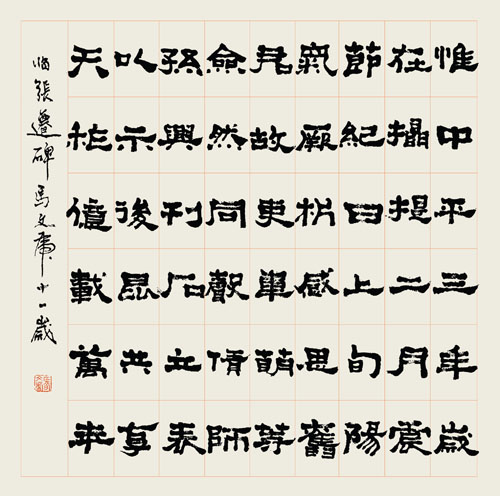 惟中平三年歲
在攝提二月震
節紀日上旬陽
氣厥析感思舊
君故吏韋萌等
僉然同聲賃師
孫興刊石立表
以示後昆共享
天祚億載萬年
临張遷碑馬文虎十一歲